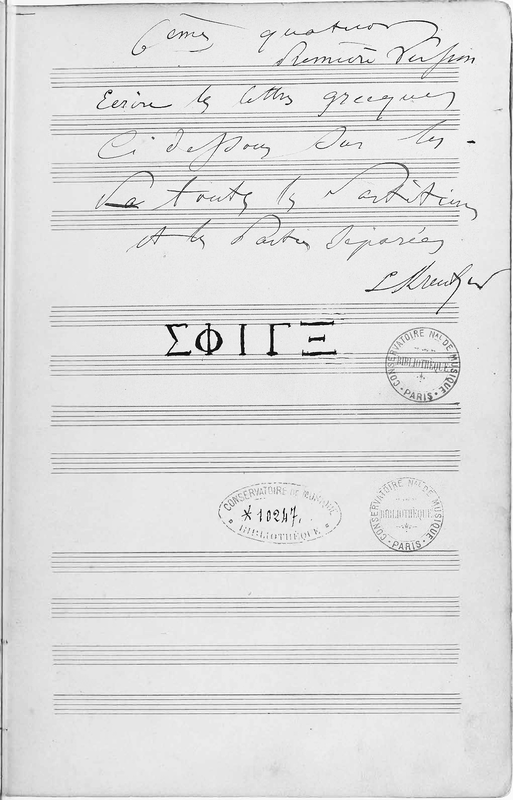 6ème quatuor
Première Version
Ecrire les lettres grecques
Ci dessous sur les
toutes les Partitions
et les Parties Séparées
L Kreutzer
ΣΦΙΓΞ
CONSERVATOIRE NAL DE MUSIQUE
BIBLIOTHÈQUE
PARIS
CONSERVATOIRE DE MUSIQUE
*10247.
BIBLIOTHÈQUE
CONSERVATOIRE NAL DE MUSIQUE
BIBLIOTHÈQUE
PARIS